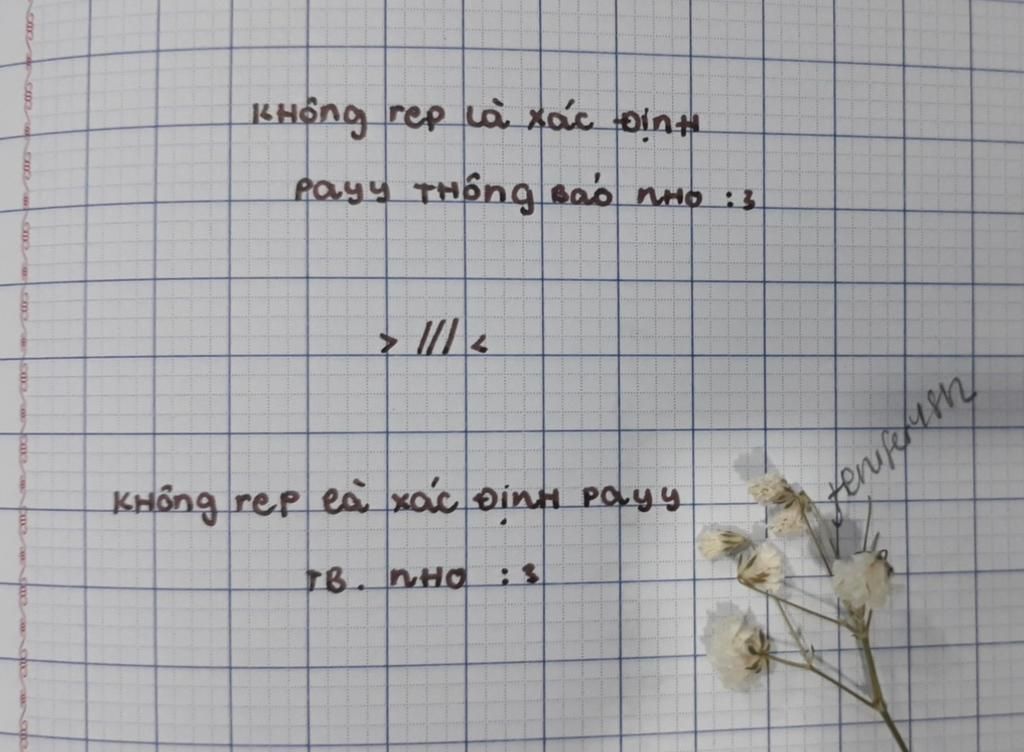 không rep là xác định
payy thông báo nho :3
> /// <
không rep là xác định payy
TB. nho :3